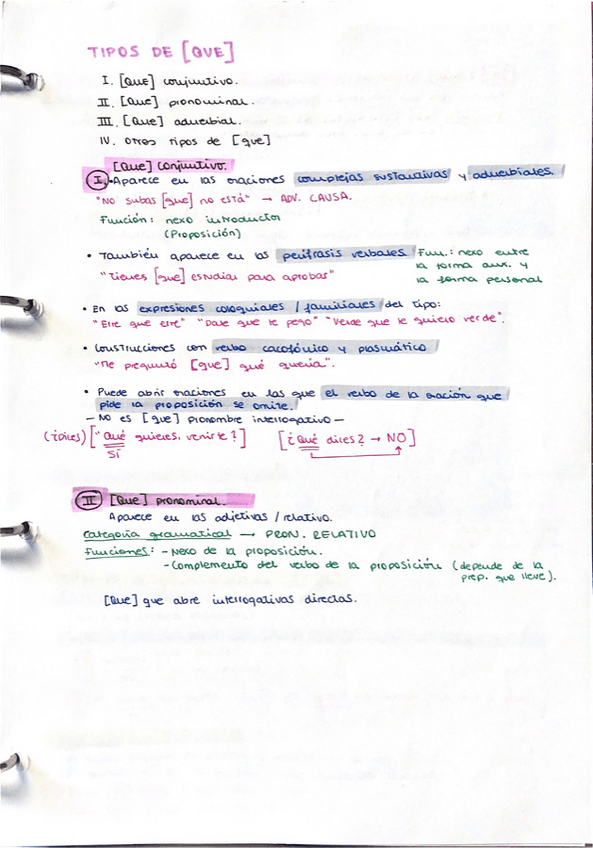 TIPOS DE [QUE]
I. [Que] conjuntivo.
II. [Que] pronominal.
III. [Que] adverbial.
IV. Otros tipos de [que]
[Que] conjuntivo.
I. - Aparece en las oraciones complejas sustantivas y adverbiales.
"No subas [que] no está" → ADV. CAUSA.
Función: nexo introductor
(Proposición)
• También aparece en las perífrasis verbales. Fun.: nexo entre
la forma aux. y
"Tienes [que] estudiar para aprobar"
la forma personal
• En las expresiones coloquiales / familiares del tipo:
"Erre que erre" "Dale que te pego" "Verde que te quiero verde".
• Construcciones con verbo cacofónico y plasmático
"Me preguntó [que] qué quería".
• Puede abrir oraciones en las que el verbo de la oración que
pide la proposición se omite.
- No es [que] pronombre interrogativo -
(¿dices) ["Qué quieres, venirte?] [¿Qué dices? → NO]
SÍ
II [Que] pronominal.
Aparece en las adjetivas / relativo.
Categoría gramatical → PRON. RELATIVO
Funciones: - Nexo de la proposición.
- Complemento del verbo de la proposición (depende de la
prep. que lleve).
[Que] que abre interrogativas directas.